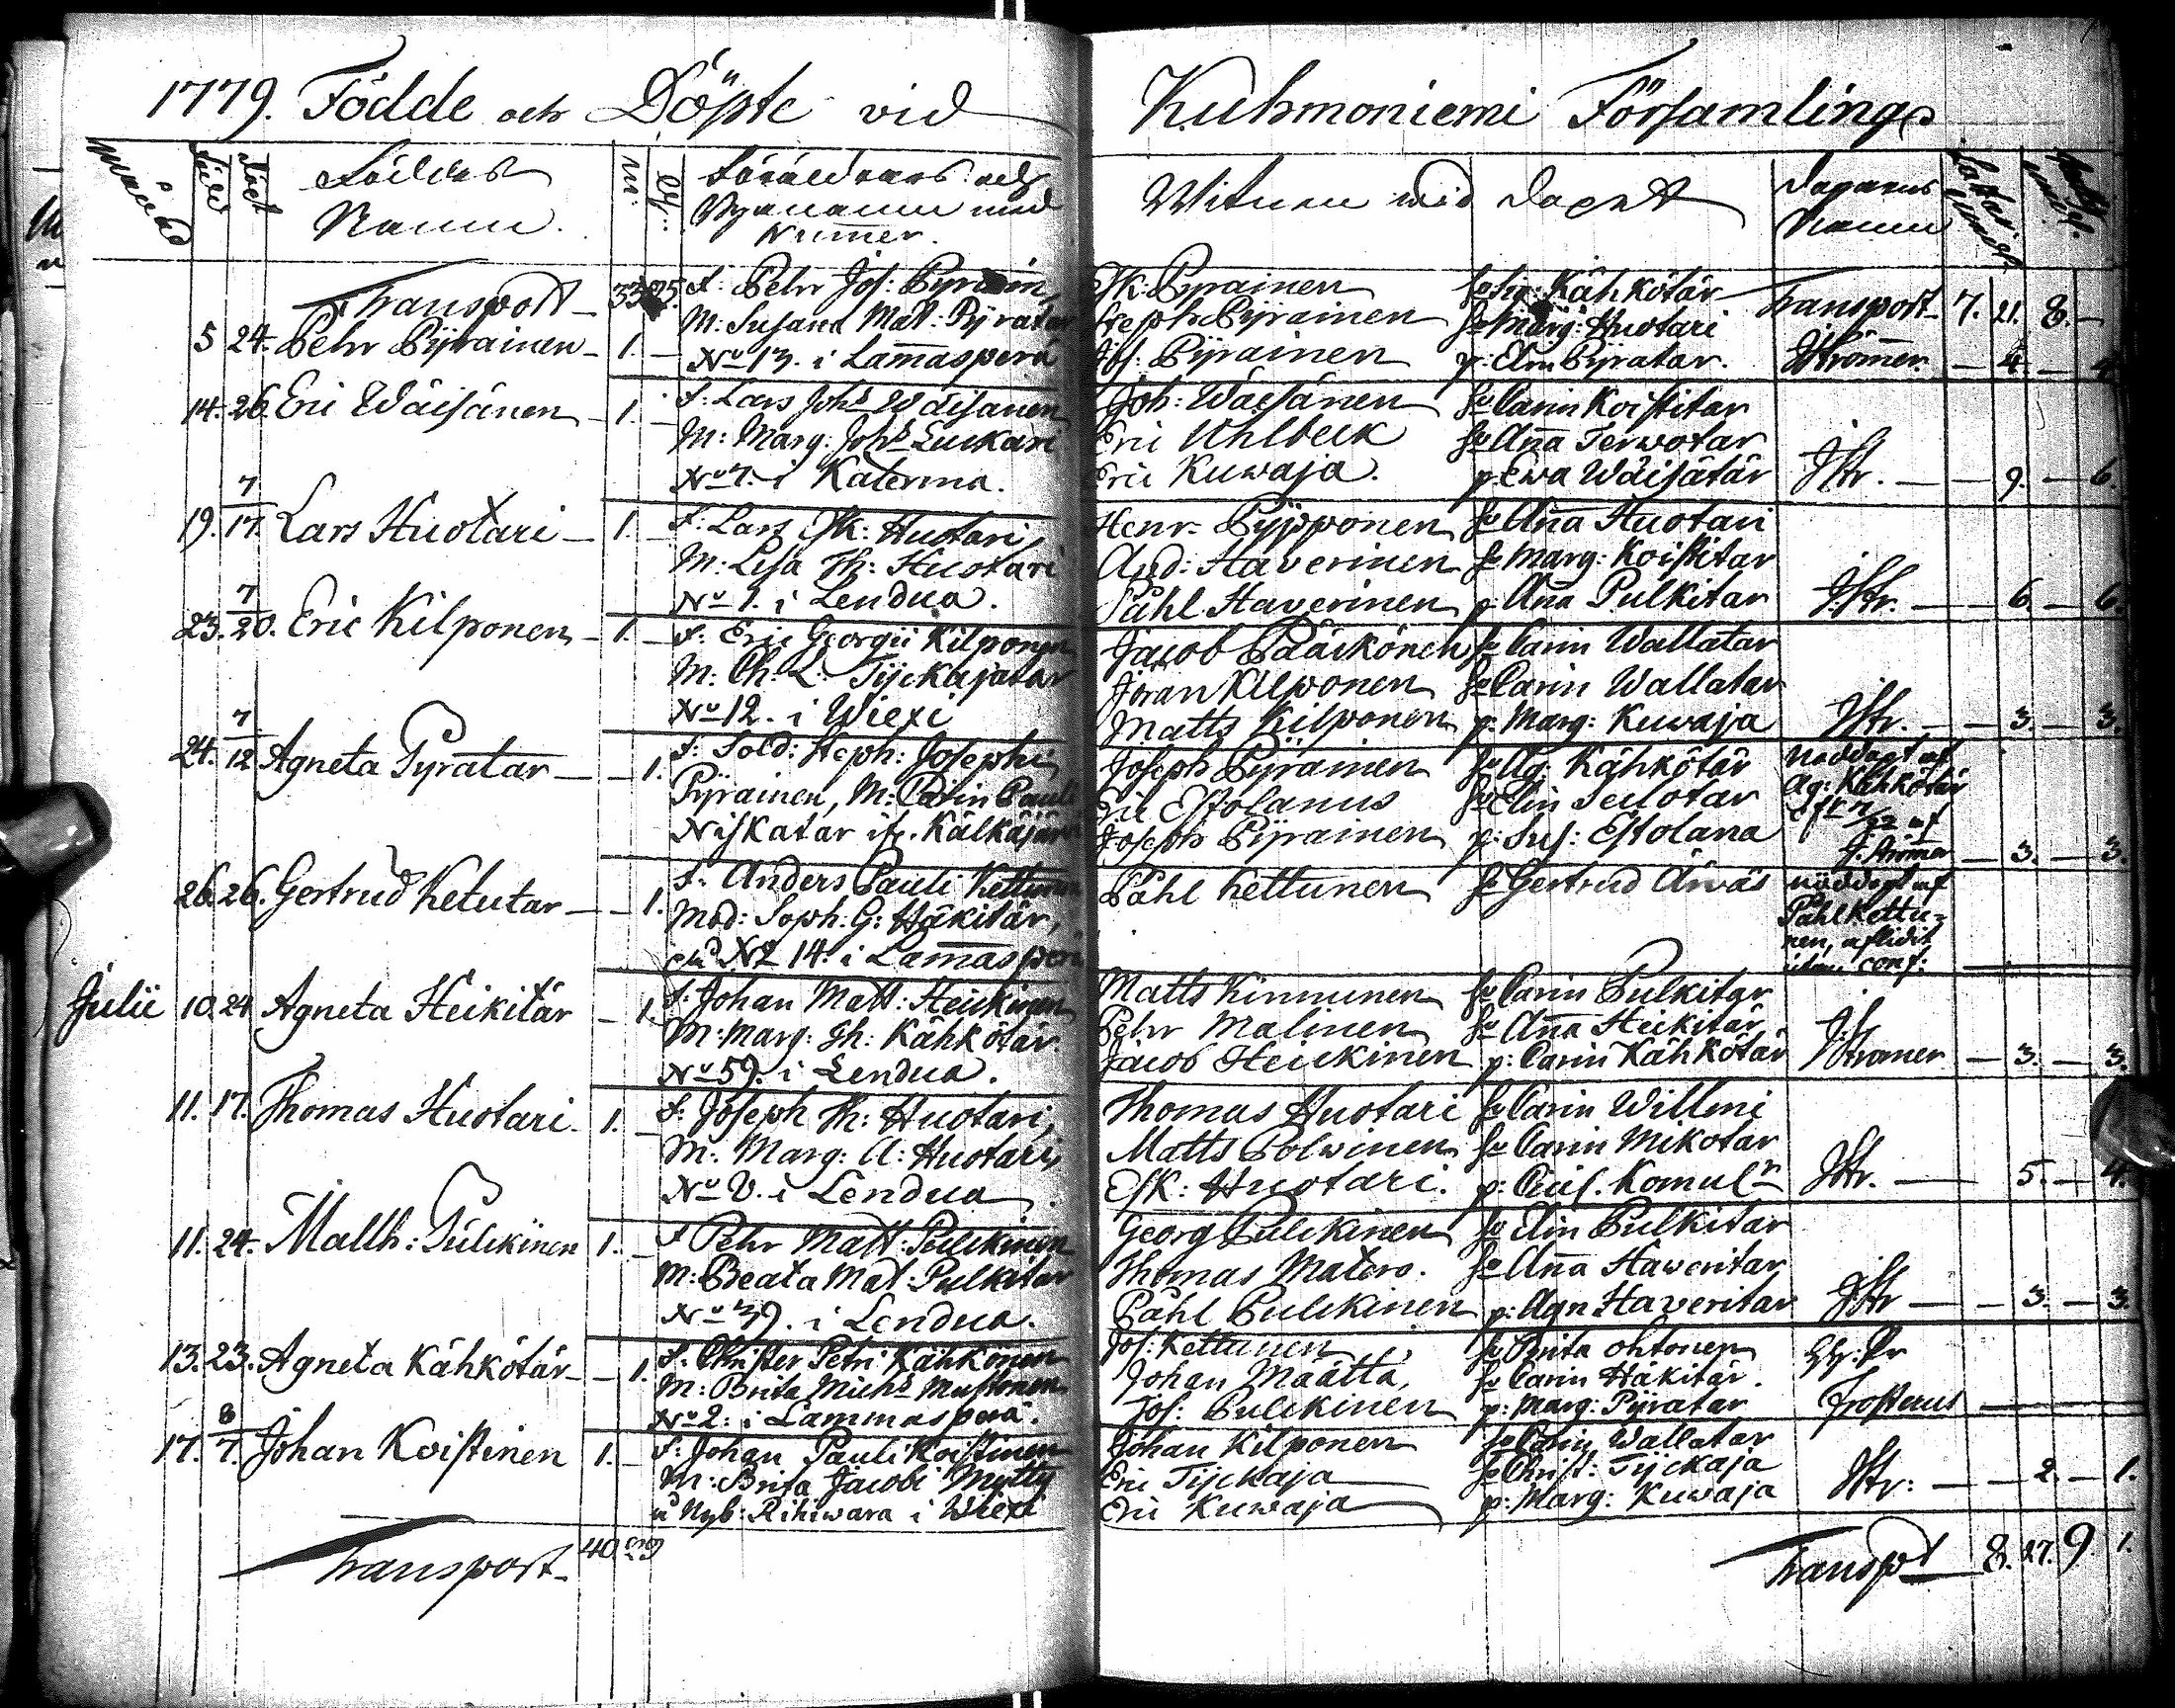 1779. Födde och Döpte vid Kuhmoniemi Församling
Månad Född Döpt
Namn.
Föräldrars och
Bynamn med
Numer.
Witnen wid Dopet
Döparens
Namn
Transport 33 25.
Transport 7. 21. 8. —
5 24. Pehr Pyrainen 1. —
F: Pehr Jos: Pyrainen
M: Susana Mat: Pyratar
No 13. i Lam̅asperä
Esk: Pyrainen
Steph: Pyrainen
Jos: Pyrainen
hu Sig: Kähkötär
hu Marg: Huotari
p: Elin Pyratar.
J Ström̅er. — 4. — 4.
14. 26. Eric Wäisänen 1. —
F: Lars Johs Wäisänen
M: Marg: Johs Luckari
No 7. i Katerma.
Joh: Wäisänen
Eric Uhlbeck
Eric Kuwaja.
hu Carin Koistitar
hu An̅a Terwotar
p: Ewa Wäisätär
JStr. — 9. — 6.
19. 7/17. Lars Huotari 1. —
F: Lars Esk: Huotari,
M: Lisa Th: Huotari
No 1. i Lendua.
Henr. Pypponen
And: Haverinen
Påhl Haverinen
hu An̅a Huotari
hu Marg: Koistitar
p: An̅a Pulkitar
J.Str. — 6. — 6.
23. 7/20. Eric Kilponen 1. —
F: Eric Georgii Kilponen
M: Ch: L: Tyckajatar
No 12. i Wiexi
Jacob Pääskönen
Jöran Kilponen
Matts Kilponen
hu Carin Wallatar
hu Carin Wallatar
p: Marg: Kuwaja
JStr. — 3. — 3.
24. 7/12 Agneta Pyratar — 1.
F: Sold: Steph: Josephi
Pyrainen, M: Carin Pauli
Niskatar ifr. Kälkäjärvi
Joseph Pyrainen
Eric Estolanus
Joseph Pyrainen
hu Ag: Kähkötär
hu Elin Seilotar
p: Sus: Estolana
Nöddöpt af
Ag: Kähkötär
J. Ström̅er — 3. — 3.
26. 26. Gertrud Ketutar — 1.
F: Anders Pauli Kettunen
Mod: Soph: G: Häkitär,
No 14. i Lam̅asperä
Påhl Kettunen
hu Gertrud Äiwäs
nöddöpt af
Påhl Kettu-
nen, aflidit
utan conf:
Julii 10. 24 Agneta Heikitär — 1.
F: Johan Matt: Heickinen
M: Marg: Th: Kähkötär.
No 59. i Lendua.
Matts Kinnunen
Pehr Malinen
Jacob Heickinen
hu Carin Pulkitar
hu An̅a Heikitär
p: Carin Kähkötär
J Strömer — 3. — 3.
11. 17. Thomas Huotari. 1. —
F: Joseph Th: Huotari,
M: Marg: A: Huotari,
No 2. i Lendua
Thomas Huotari
Matts Polwinen
Esk: Huotari.
hu Carin Willmi
hu Carin Mikotar
p: Cecil. Komuln
JStr. — 5. — 4.
11. 24. Matth: Pulckinen 1. —
F Pehr Matt: Pulckinen
M: Beata Mat: Pulkitar
No 39. i Lendua.
Georg Pulckinen
Thomas Matero.
Påhl Pulckinen
hu Elin Pulkitar
hu An̅a Haweritar
p: Agn Haveritar
JStr — 3. — 3.
13. 23. Agneta Kähkötär — 1.
F: Christer Petri Kähkönen
M: Brita Michs Mustonen
No 2: i Lammasperä.
Jos: Kettunen
Johan Määttä,
Jos: Pulckinen
hu Brita Ohtonen
hu Carin Häkitär.
p: Marg: Pyratar
Frosterus
17. 8/7. Johan Koistinen 1. —
F: Johan Pauli Koistinen
M: Brita Jacobi Mytty
Nyb: Rihiwara i Wiexi
Johan Kilponen
Eric Tyckaja
Eric Kuwaja
hu Carin Wallatar
hu Christ: Tyckaja
p: Marg: Kuwaja
JStr: — 2. — 1.
Transport 40. 29
Transpt 8. 27. 9. 1.